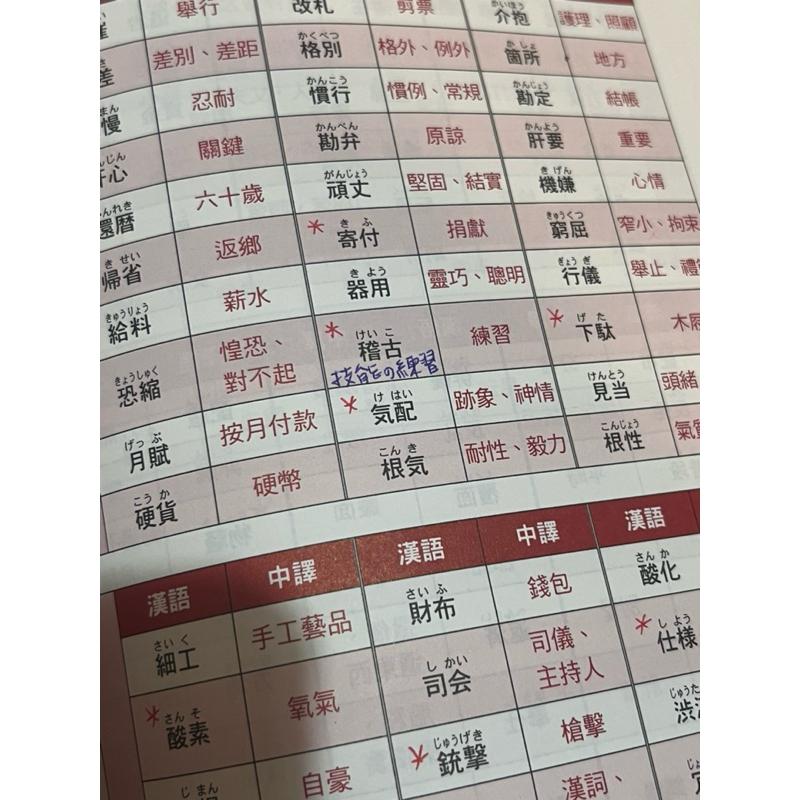 舉行 改札 剪票 かいほう 介抱 護理、照顧
差 差別、差距 かくべつ 格別 格外、例外 かしょ 箇所 地方
慢 忍耐 かんこう 慣行 慣例、常規 かんじょう 勘定 結帳
心 關鍵 かんべん 勘弁 原諒 かんよう 肝要 重要
還暦 六十歲 がんじょう 頑丈 堅固、結實 きげん 機嫌 心情
きせい 帰省 返鄉 きふ 寄付 捐獻 きゅうくつ 窮屈 窄小、拘束
きゅうりょう 給料 薪水 きよう 器用 靈巧、聰明 ぎょうぎ 行儀 舉止、禮
きょうしゅく 恐縮 惶恐、對不起 けいこ 稽古 練習 げた 下駄 木屐
技能の練習
げっぷ 月賦 按月付款 けはい 気配 跡象、神情 けんとう 見当 頭緒
こうか 硬貨 硬幣 こんき 根気 耐性、毅力 こんじょう 根性 氣
漢語 中譯 漢語 中譯 漢語
さいく 細工 手工藝品 さいふ 財布 錢包 さんか 酸化
さんそ 酸素 氧氣 しかい 司会 司儀、主持人 しよう 仕様
じまん 自豪 じゅうげき 銃撃 槍擊
漢詞、